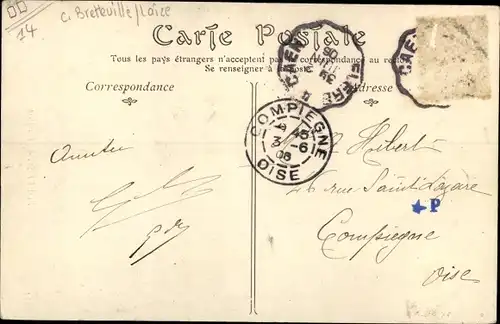 C. Bretteville/Laize
14
Carte Postale
Tous les pays étrangers n'acceptent pas la correspondance au recto
Se renseigner à la Poste
Correspondance
Adresse
CAEN
FLERS
CAEN
COMPIEGNE
3 -6
06
OISE
Amitiés
Hibert
46 rue Saint Lazare
P
Compiegne
Oise